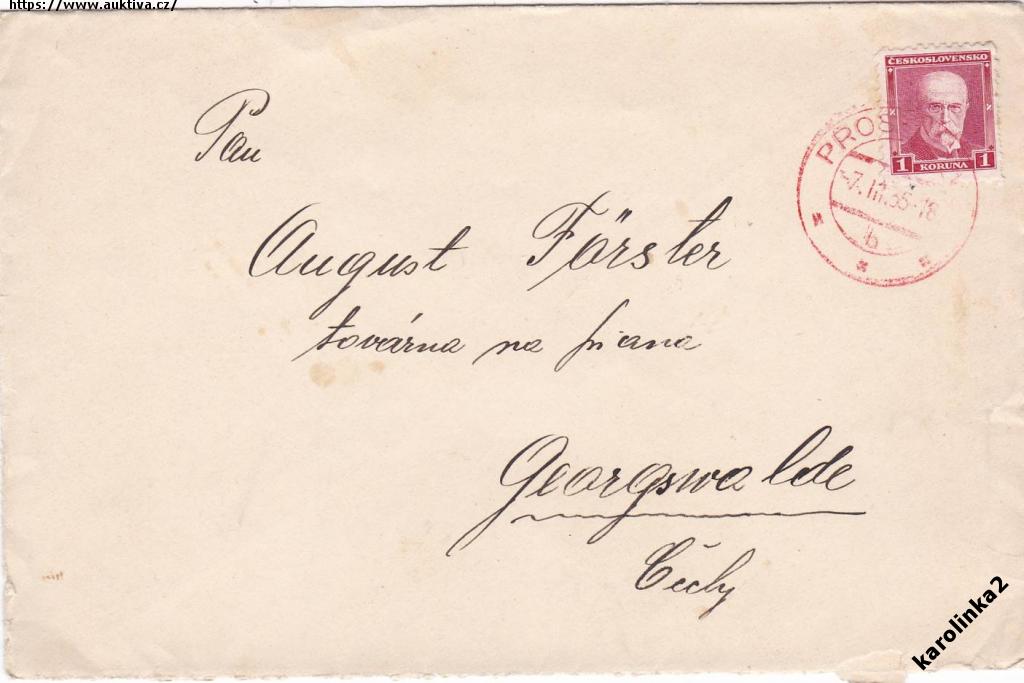 https://www.auktiva.cz/
ČESKOSLOVENSKO
1 KORUNA 1
PROS
-7.III.35-18
b
Pan
August Förster
továrna na piana
Georgswalde
Čechy
karolinka2